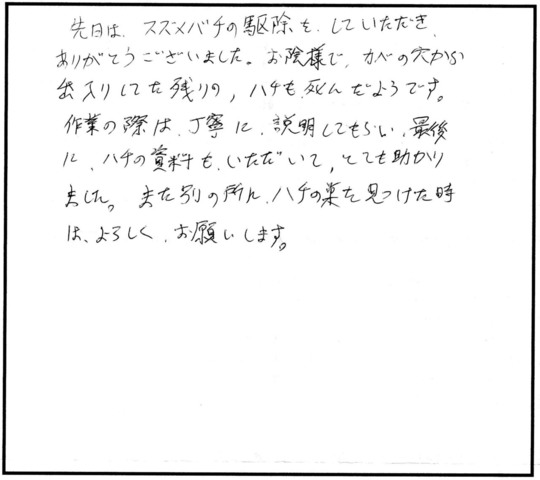 先日は、スズメバチの駆除を、していただき、
ありがとうございました。お陰様で、カベの穴から
出入りしてた残りの、ハチも、死んだようです。
作業の際は、丁寧に、説明してもらい、最後
に、ハチの資料も、いただいて、とても助かり
ました。また別の所に、ハチの巣を見つけた時
は、よろしく、お願いします。